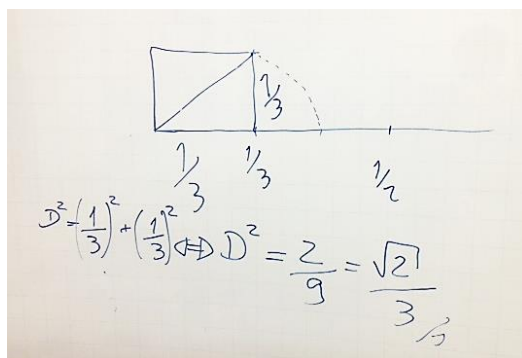 1/3
1/3 1/3 1/2
D² = (1/3)² + (1/3)² ⇔ D² = 2/9 = √2/3 //